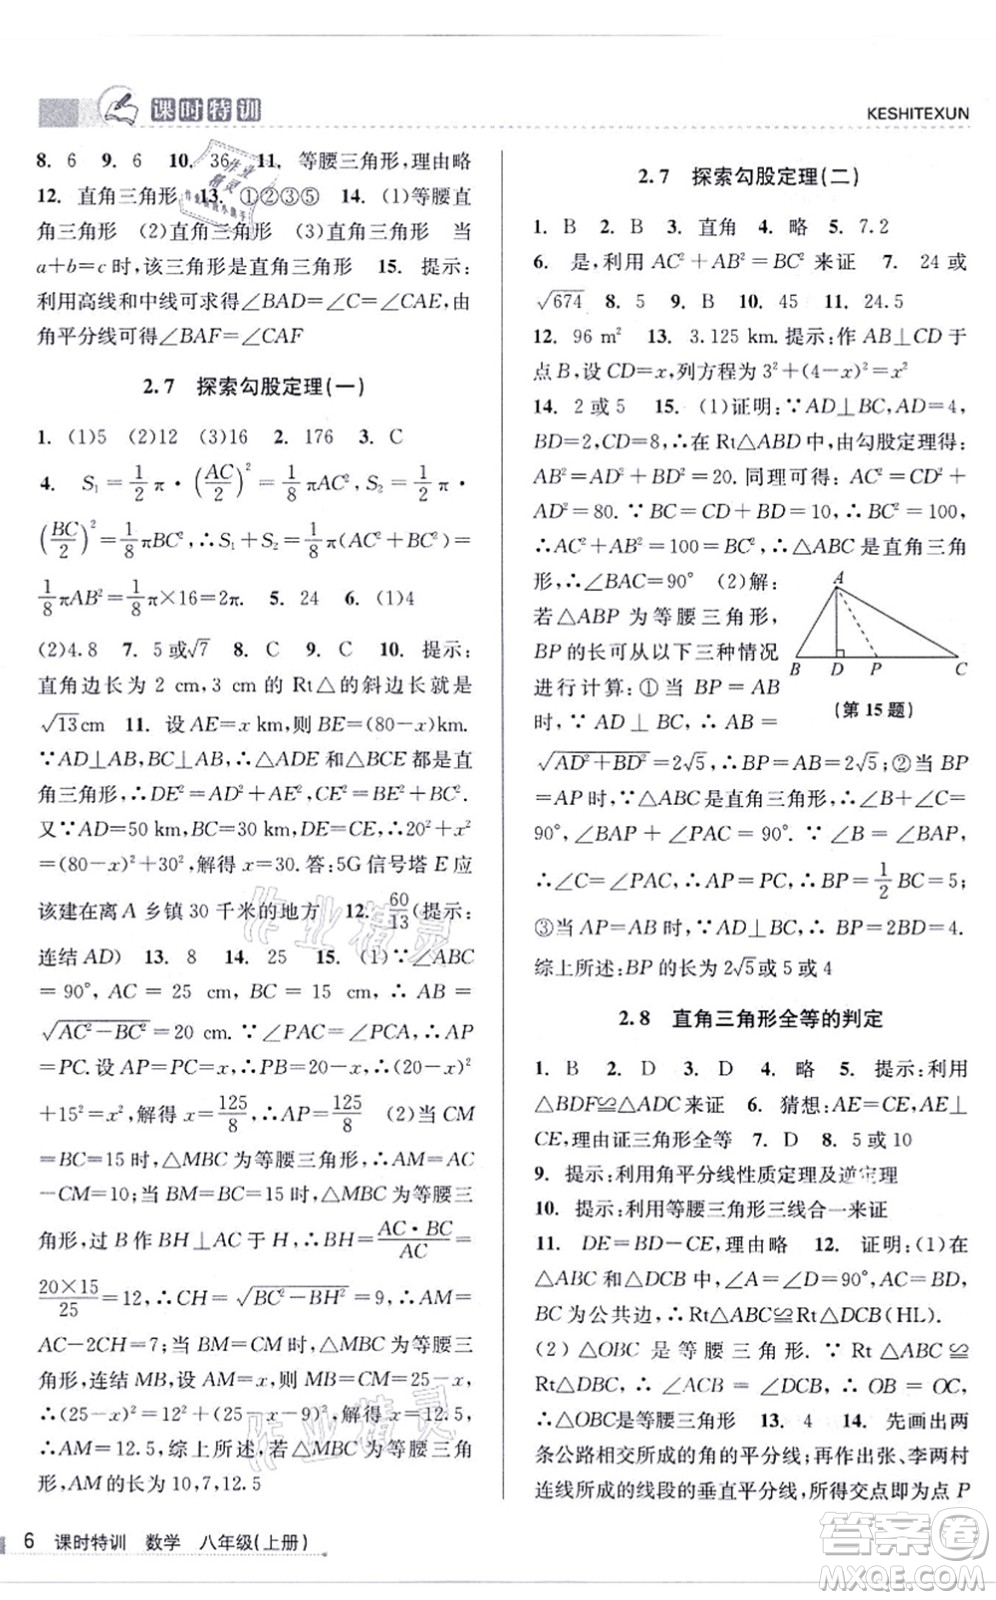 课时特训
KESHITEXUN
8. 6 9. 6 10. 36 11. 等腰三角形,理由略
12. 直角三角形 13. ①②③⑤ 14. (1)等腰直
角三角形 (2)直角三角形 (3)直角三角形 当
a+b=c时,该三角形是直角三角形 15. 提示:
利用高线和中线可求得∠BAD=∠C=∠CAE,由
角平分线可得∠BAF=∠CAF
2.7 探索勾股定理(一)
1. (1)5 (2)12 (3)16 2. 176 3. C
4. S₁=1/2 π·(AC/2)²=1/8 πAC², S₂=1/2 π·
(BC/2)²=1/8 πBC²,∴S₁+S₂=1/8 π(AC²+BC²)=
1/8 πAB²=1/8 π×16=2π. 5. 24 6. (1)4
(2)4.8 7. 5或√7 8. C 9. C 10. 提示:
直角边长为 2 cm,3 cm 的 Rt△的斜边长就是
√13 cm 11. 设 AE=x km,则 BE=(80-x)km.
∵AD⊥AB,BC⊥AB,∴△ADE 和△BCE 都是直
角三角形,∴DE²=AD²+AE²,CE²=BE²+BC².
又∵AD=50 km,BC=30 km,DE=CE,∴20²+x²
=(80-x)²+30²,解得 x=30. 答:5G 信号塔 E 应
该建在离A 乡镇 30 千米的地方 12. 60/13(提示:
连结AD) 13. 8 14. 25 15. (1)∵∠ABC
=90°, AC=25 cm, BC=15 cm, ∴AB=
√(AC²-BC²)=20 cm. ∵∠PAC=∠PCA,∴AP
=PC. 设 AP=PC=x,则 PB=20-x,∴(20-x)²
+15²=x²,解得 x=125/8,∴AP=125/8 (2)当 CM
=BC=15 时,△MBC 为等腰三角形,∴AM=AC
-CM=10;当 BM=BC=15 时,△MBC 为等腰三
角形,过 B 作 BH⊥AC 于点 H,∴BH=AC·BC/AC=
20×15/25=12,∴CH=√(BC²-BH²)=9,∴AM=
AC-2CH=7;当 BM=CM 时,△MBC 为等腰三角
形,连结 MB,设 AM=x,则 BM=CM=25-x,
∴(25-x)²=(20-x)²+15²,解得 x=12.5,
∴AM=12.5,综上所述,当△MBC 为等腰三角
形,AM 的长为 10,7,12.5
2.7 探索勾股定理(二)
1. B 2. B 3. 直角 4. 略 5. 7.2
6. 是,利用 AC²+AB²=BC² 来证 7. 24 或
√674 8. 5 9. B 10. 45 11. 24.5
12. 96 m² 13. 3.125 km. 提示:作 AB⊥CD 于
点 B,设 CD=x,列方程为 3²+(4-x)²=x²
14. 2 或 5 15. (1)证明:∵AD⊥BC,AD=4,
BD=2,CD=8,∴在 Rt△ABD 中,由勾股定理得:
AB²=AD²+BD²=20. 同理可得:AC²=CD²+
AD²=80. ∵BC=CD+BD=10,∴BC²=100,
∴AC²+AB²=100=BC²,∴△ABC 是直角三角
形,∴∠BAC=90° (2)解:
若△ABP 为等腰三角形,
BP 的长可从以下三种情况
进行计算:①当 BP=AB
时, ∵AD⊥BC, ∴AB=
A
B D P C
(第 15 题)
√(AD²+BD²)=2√5,∴BP=AB=2√5;②当 AP
=BP 时,∵△ABC 是直角三角形,∴∠B+∠C=
90°,∠BAP+∠PAC=90°. ∵∠B=∠BAP,
∴∠C=∠PAC,∴AP=PC,∴BP=1/2 BC=5;
③当 AP=AB 时,∵AD⊥BC,∴BP=2BD=4.
综上所述:BP 的长为 2√5或 5 或 4
2.8 直角三角形全等的判定
1. B 2. D 3. D 4. 略 5. 提示:利用
△BDF≌△ADC 来证 6. 猜想:AE=CE,AE⊥
CE,理由证三角形全等 7. D 8. 5 或 10
9. 提示:利用角平分线性质定理及逆定理
10. 提示:利用等腰三角形三线合一来证
11. DE=BD-CE,理由略 12. 证明:(1)在
△ABC 和△DCB 中,∠A=∠D=90°,AC=BD,
BC 为公共边,∴Rt△ABC≌Rt△DCB(HL).
(2)△OBC 是等腰三角形. ∵Rt△ABC≌
Rt△DBC, ∴∠ACB=∠DBC, ∴OB=OC,
∴△OBC是等腰三角形 13. 4 14. 先画出两
条公路相交所成的角的平分线;再作出张、李两村
连线所成的线段的垂直平分线,所得交点即为点 P
6 课时特训 数学 八年级(上册)
作业精灵
作业精灵
答案圈
MXQE.COM